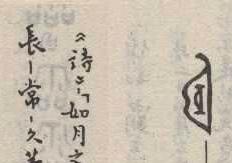 《詩》:「如月之
長–常–久